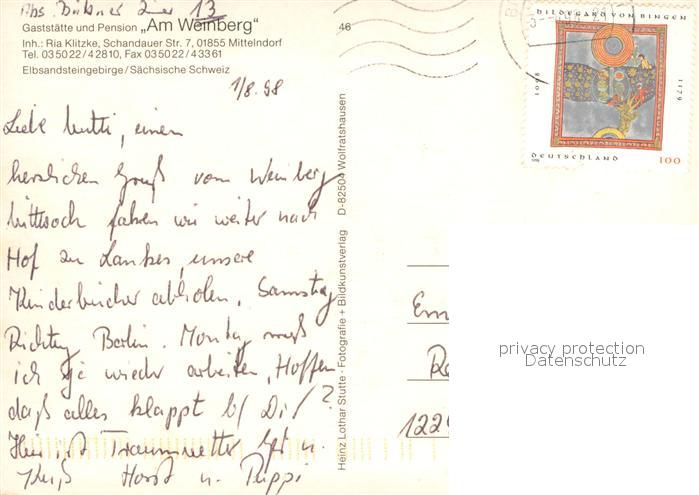 Abs. Zimmer 13
Gaststätte und Pension „Am Weinberg"
Inh.: Ria Klitzke, Schandauer Str. 7, 01855 Mittelndorf
Tel. 035022/42810, Fax 035022/43361
Elbsandsteingebirge/Sächsische Schweiz
46
1/8.98
Liebe Mutti, einen
herzlichen Gruß vom Weinberg
Mittwoch fahren wir weiter nach
Hof zu unsere
Kinderbücher abholen. Samstag
Richtung Berlin. Montag muß
ich ja wieder arbeiten. Hoffen
daß alles klappt bei Dir?
Hier ist Traumwetter
Kuß Horst u. Puppi
Heinz Lothar Stutte · Fotografie + Bildkunstverlag D-82504 Wolfratshausen
HILDEGARD VON BINGEN
1098
1179
DEUTSCHLAND 100
1998
Em
R
122
privacy protection
Datenschutz